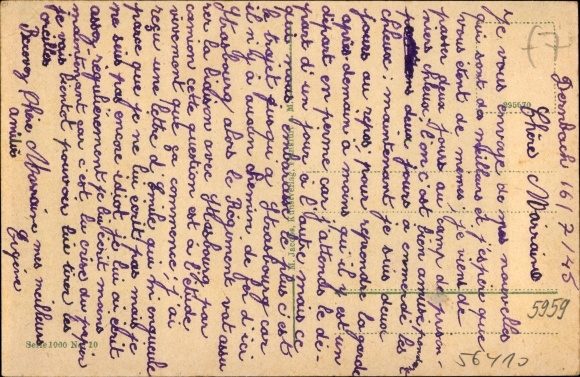 Dernbach 16/7/45
Chère Marraine
Je vous envoye de mes nouvelles
qui sont des meilleurs et j'espère que
vous étent de memes, je viens de
passer deux jours au camp de prison-
niers chleux l'on c'est bien amusé pen-
dans deux jours a commander les
chleux; maintenant je suis deux
jours au repos, pour reprendre la garde
après-domain a mains qu'il y est un
départ en perme car j'attends le dé-
part d'un jour a l'autre mais ce
qui nous c'est
le trajet jusqu'a Strasbourg car
il n'y a aucun chemin de fer d'ici
Strasbourg alors le Régement vat assu
rer la liaison avec Strasbourg par
camion cette question est a l'étude
vivement que ça commence, j'ai
reçu une lettre d'Emile qui m'engueule
parce que je ne lui ecrit pas mais je
ne suis pas encore idiot je lui ai ecrit
assez régulièrement je lui écrit moins
maintenant car c'est la crise du papier
je vais bientot pouvoir lui tirer les
oreilles
Recevez Chère Marraine mes meilleurs
amitiés
Eugène
395670
5959
56410
Serie 1000 No. 10